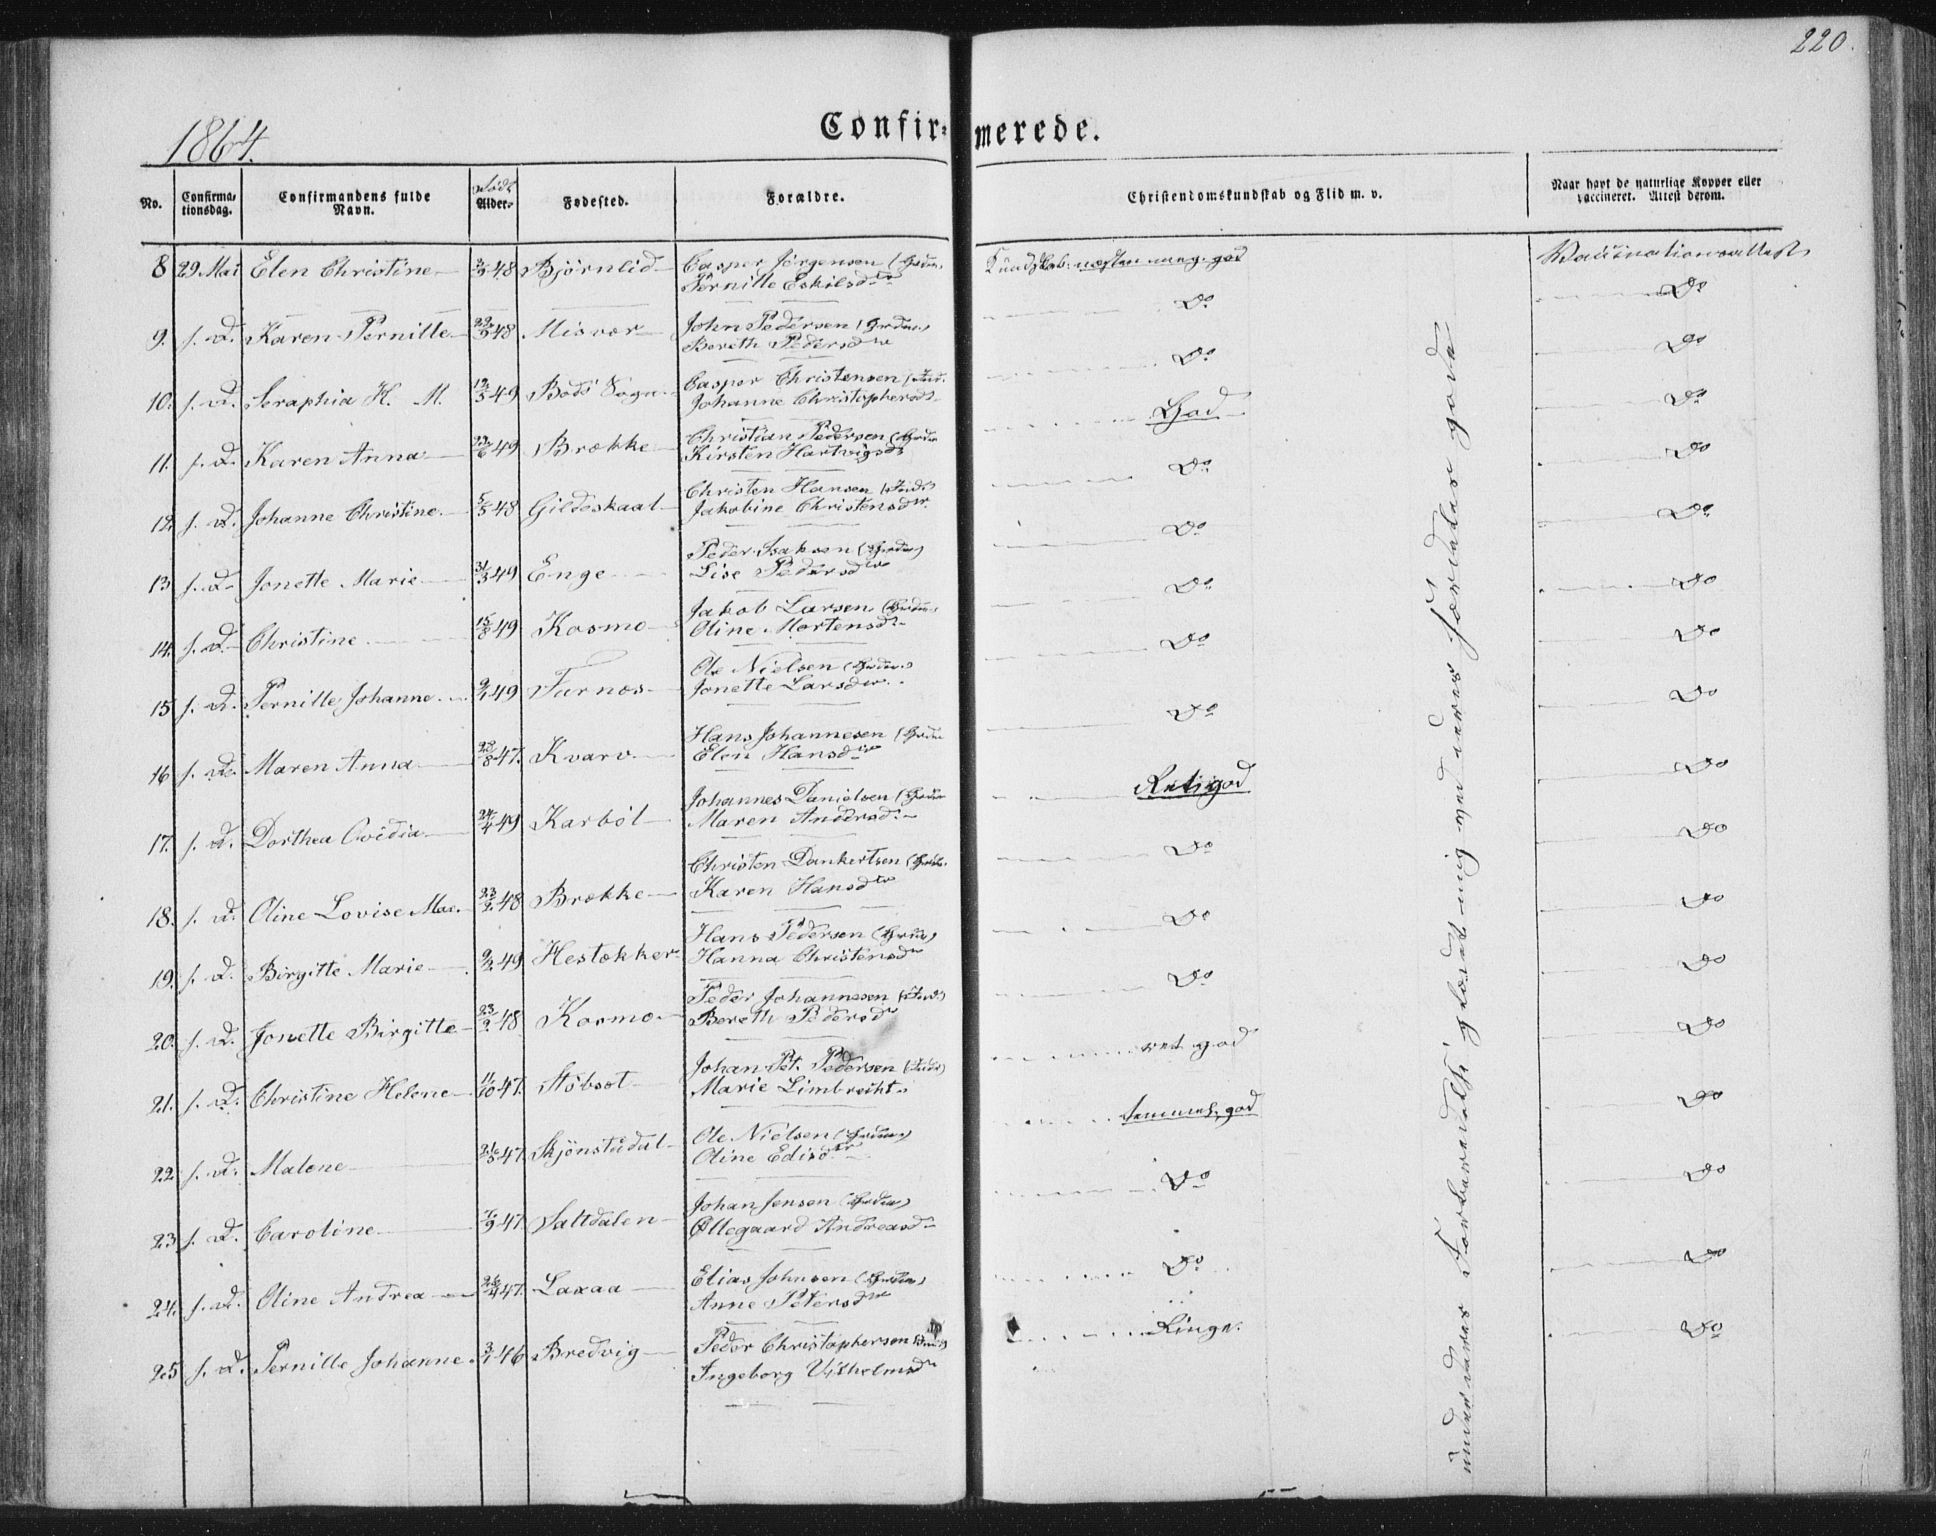 220.
1864.
Confirmerede.
No. Confirmationsdag. Confirmandens fulde Navn. Født Alder. Fødested. Forældre. Christendomskundskab og Flid m. v. Naar havt de naturlige Kopper eller vaccineret. Attest derom.
8 29 Mai Elen Christine 48 Bjørnlid Casper Jörgensen (Gaardm.) Kundskab: næsten meget god Vaccinationsattest
Pernille Eskilsdtr Do
9. s. D. Karen Pernille 48 Misvær John Pedersen (Gaardm.) Do
Bereth Pedersdtr Do
10. s. D. Seraphia H. M. 12/5 49 Bodö Sogn Casper Christensen (Ind. Do
Johanne Christophersdtr Do
11. s. D. Karen Anna 23/6 49 Brække Christian Pedersen (Gaardm. God
Kirsten Hartvigsdtr Do
12. s. D. Johanne Christine 5/5 48 Gildeskaal Christen Hansen (Ind.) Do
Jakobine Christensdtr Do
13 s. D. Jonette Marie 31/3 49 Enge Peder Isaksen (Gaardm.) Do
Lise Pedersdtr Do
14. s. D. Christine 15/8 49 Kosmo Jakob Larsen (Gaardm.) Do
Oline Mortensdtr Do
15 s. D. Pernille Johanne 9/1 49 Furnes Ole Nielsen (Gaardm.) Do
Jonette Larsdtr Do
16 s. D. Maren Anna 28/8 47. Kvarv Hans Johannesen (Gaardm. Do
Elen Hansdtr Do
17. s. D. Dorthea Ovidia 24/4 49 Karböl Johannes Danielsen (Gaardm. Retgod
Maren Andersdtr Do
18. s. D. Oline Lovise Mar. 23/2 48 Brække Christen Dankertsen (Gaardm. Do
Karen Hansdtr Do
19. s. D. Birgitte Marie 9/2 49 Hestækker Hans Pedersen (Gaardm.) Do
Hanna Christensdtr Do
20. s. D. Jonette Birgitte 23/2 48 Kosmo Peder Johannesen (Ind.) Do
Bereth Pedersdtr Do
21. s. D. Christine Helene 11/10 47. Stöbsöt Johan Pet. Pedersen (Ind.) ret god
Marie Limbrecht. Do
22 s. D. Malene 21/5 47. Skjönstådal Ole Nielsen (Gaardm.) temmel. god
Oline Edisdtr Do
23 s. D. Caroline 7/9 47 Saltdalen Johan Jensen (Gaardm.) Do
Øllegaard Andreasdtr Do
24. s. D. Oline Andrea 26/4 47. Laxaa Elias Johnsen (Gaardm.) Do
Anne Petersdtr Do
25 s. D. Pernille Johanne 3/1 46 Bredvig Peder Christophersen Ringe. Do
Ingeborg Vilhelmsdtr
under deres Forberedelse glædet mig ved deres særdeles gode